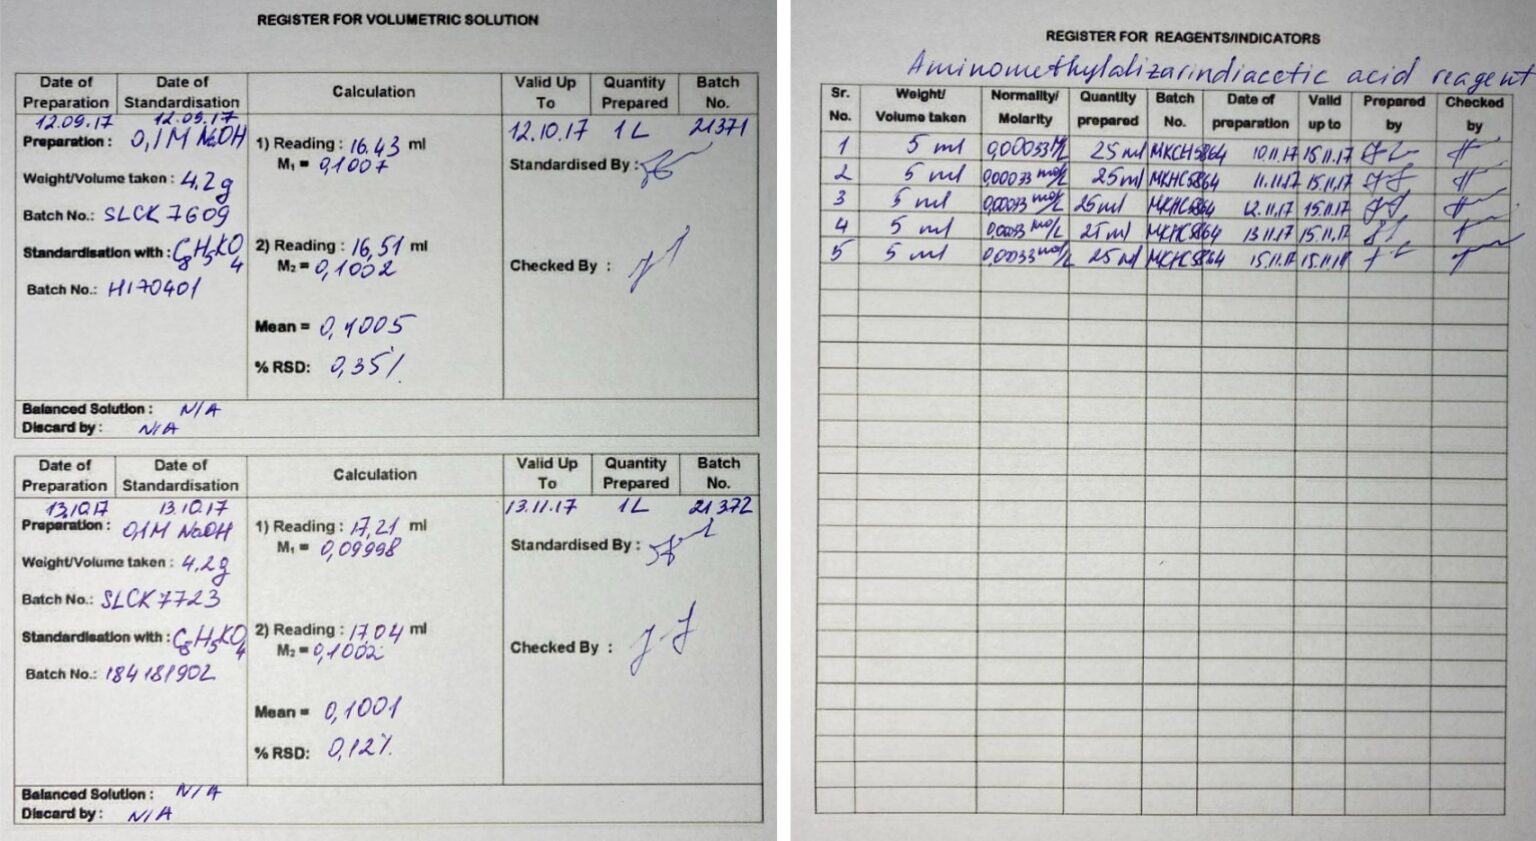 REGISTER FOR VOLUMETRIC SOLUTION
Date of Preparation Date of Standardisation Calculation Valid Up To Quantity Prepared Batch No.
12.09.17 12.09.17 12.10.17 1L 21371
Preparation : 0,1M NaOH
Weight/Volume taken : 4,2g
Batch No.: SLCK 7609
Standardisation with : C8H5KO4
Batch No.: H170401
1) Reading : 16.43 ml
M₁ = 0,1007
2) Reading : 16,51 ml
M₂ = 0,1002
Mean = 0,1005
% RSD: 0,35%
Standardised By :
Checked By :
Balanced Solution : N/A
Discard by : N/A
Date of Preparation Date of Standardisation Calculation Valid Up To Quantity Prepared Batch No.
13.10.17 13.10.17 13.11.17 1L 21372
Preparation : 0,1M NaOH
Weight/Volume taken : 4,2g
Batch No.: SLCK 7723
Standardisation with : C8H5KO4
Batch No.: 184181902
1) Reading : 17,21 ml
M₁ = 0,09998
2) Reading : 17,04 ml
M₂ = 0,1002
Mean = 0,1001
% RSD: 0,12%
Standardised By :
Checked By :
Balanced Solution : N/A
Discard by : N/A
REGISTER FOR REAGENTS/INDICATORS
Aminomethylalizarindiacetic acid reagent
Sr. No. Weight/ Volume taken Normality/ Molarity Quantity prepared Batch No. Date of preparation Valid up to Prepared by Checked by
1 5 ml 0,00033 M/L 25 ml MKCH5864 10.11.17 15.11.17
2 5 ml 0,00033 mol/L 25 ml MKHC5864 11.11.17 15.11.17
3 5 ml 0,00033 mol/L 25 ml MKHC5864 12.11.17 15.11.17
4 5 ml 0,0033 mol/L 25 ml MKHC5864 13.11.17 15.11.17
5 5 ml 0,0033 mol/L 25 ml MKHC5864 15.11.17